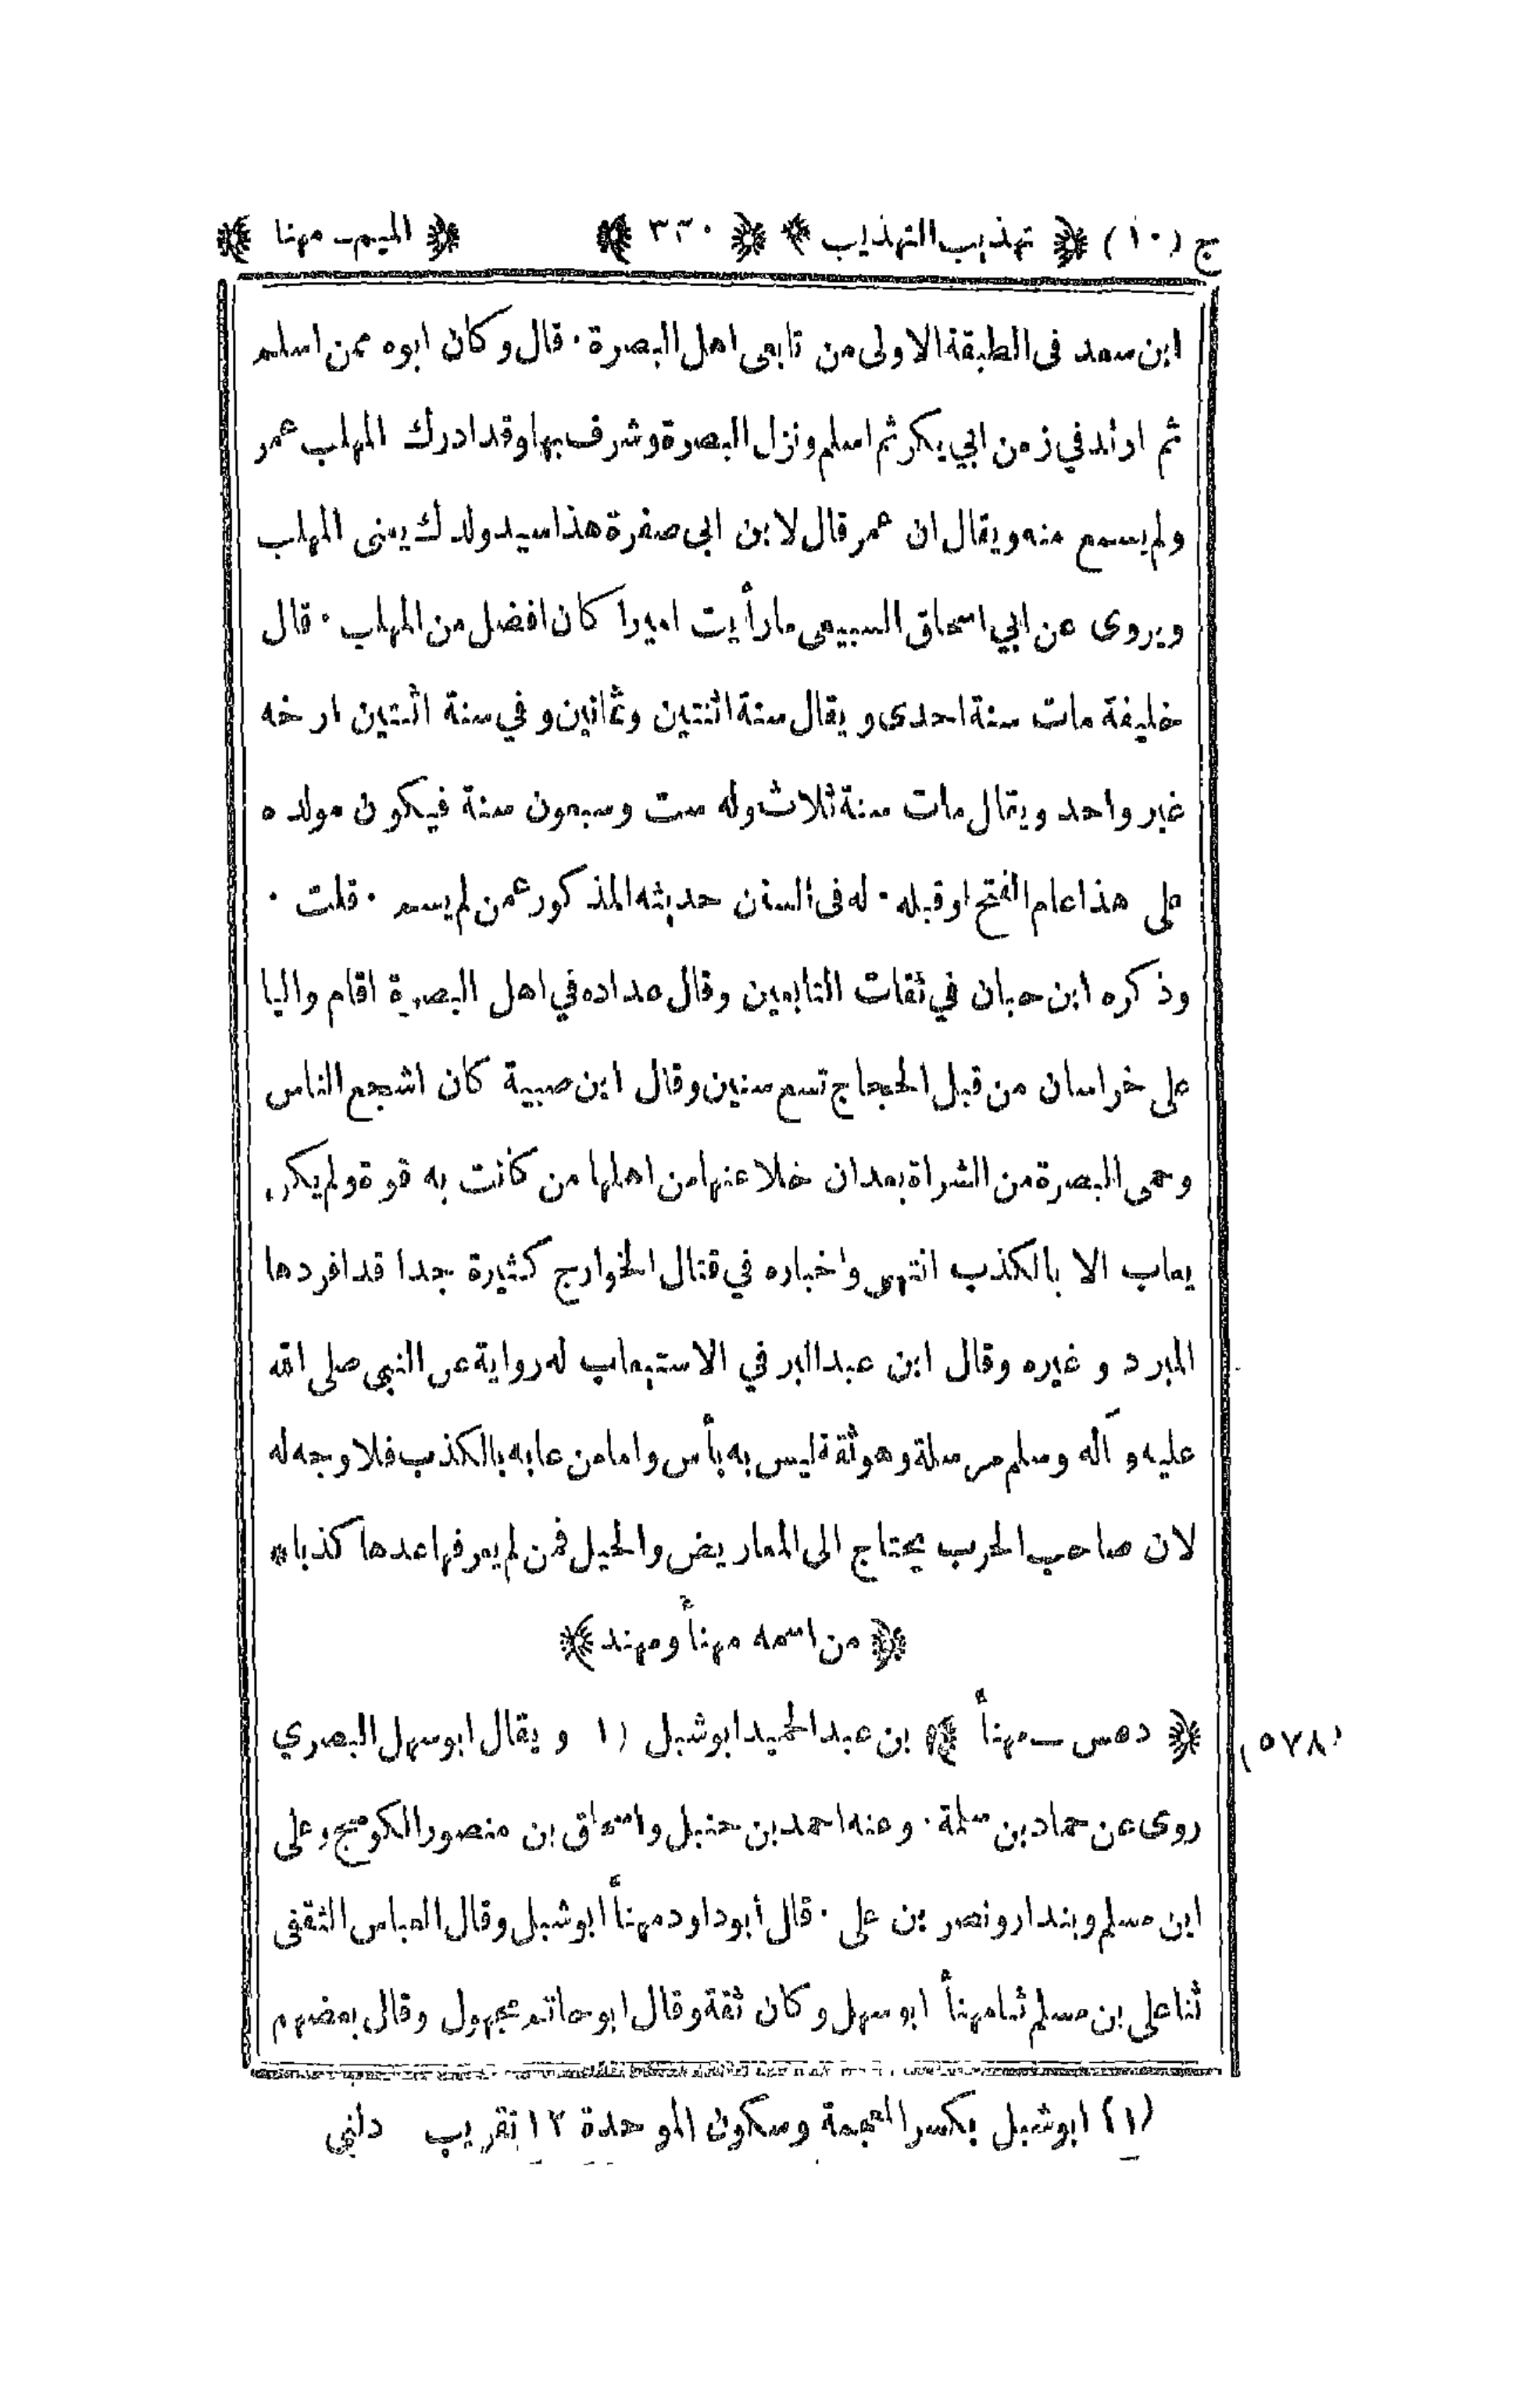 ج (١٠) ﴿ تهذيب التهذيب ﴾ ﴿ ٣٣٠ ﴾ ﴿ الميم ـ مهنا ﴾
ابن سعد فى الطبقة الاولى من تابعى اهل البصرة ٠ قال وكان ابوه ممن اسلم
ثم ارتد في زمن ابي بكر ثم اسلم ونزل البصرة وشرف بها وقد ادرك المهلب عمر
ولم يسمع منه ويقال ان عمر قال لابن ابى صفرة هذا سيد ولدك يعنى المهلب
ويروى عن ابي اسحاق السبيعى ما رأيت اميرا كان افضل من المهلب ٠ قال
خليفة مات سنة احدى ويقال سنة اثنتين وثمانين وفي سنة اثنتين ارخه
غير واحد ويقال مات سنة ثلاث وله ست وسبعون سنة فيكون مولده
على هذا عام الفتح او قبله ٠ له فى السنن حديثه المذكور عمن لم يسم ٠ قلت ٠
وذكره ابن حبان في ثقات التابعين وقال عداده في اهل البصرة اقام واليا
على خراسان من قبل الحجاج تسع سنين وقال ابن صبية كان اشجع الناس
وحمى البصرة من الشراة بعد ان خلا عنها من اهلها من كانت به قوة ولم يكن
يعاب الا بالكذب انتهى واخباره في قتال الخوارج كثيرة جدا قد افردها
المبرد و غيره وقال ابن عبد البر في الاستيعاب له رواية عن النبى صلى الله
عليه وآله وسلم مرسلة وهو ثقة ليس به بأس واما من عابه بالكذب فلا وجه له
لان صاحب الحرب يحتاج الى المعاريض والحيل فمن لم يعرفها عدها كذبا *
﴿ من اسمه مهنأ ومهند ﴾
(٥٧٨) ﴿ دهس ـ مهنأ ﴾ بن عبد الحميد ابو شبل (١ و يقال ابو سهل البصري
روى عن حماد بن سلمة ٠ وعنه احمد بن حنبل واسحاق بن منصور الكوسج وعلى
ابن مسلم وبندار ونصر بن على ٠ قال أبو داود مهنأ ابو شبل وقال العباس الثقفى
ثنا على بن مسلم ثنا مهنأ ابو سهل وكان ثقة وقال ابو حاتم مجهول وقال بعضهم
(١) ابو شبل بكسر المعجمة وسكون الموحدة ١٢ تقريب دلني